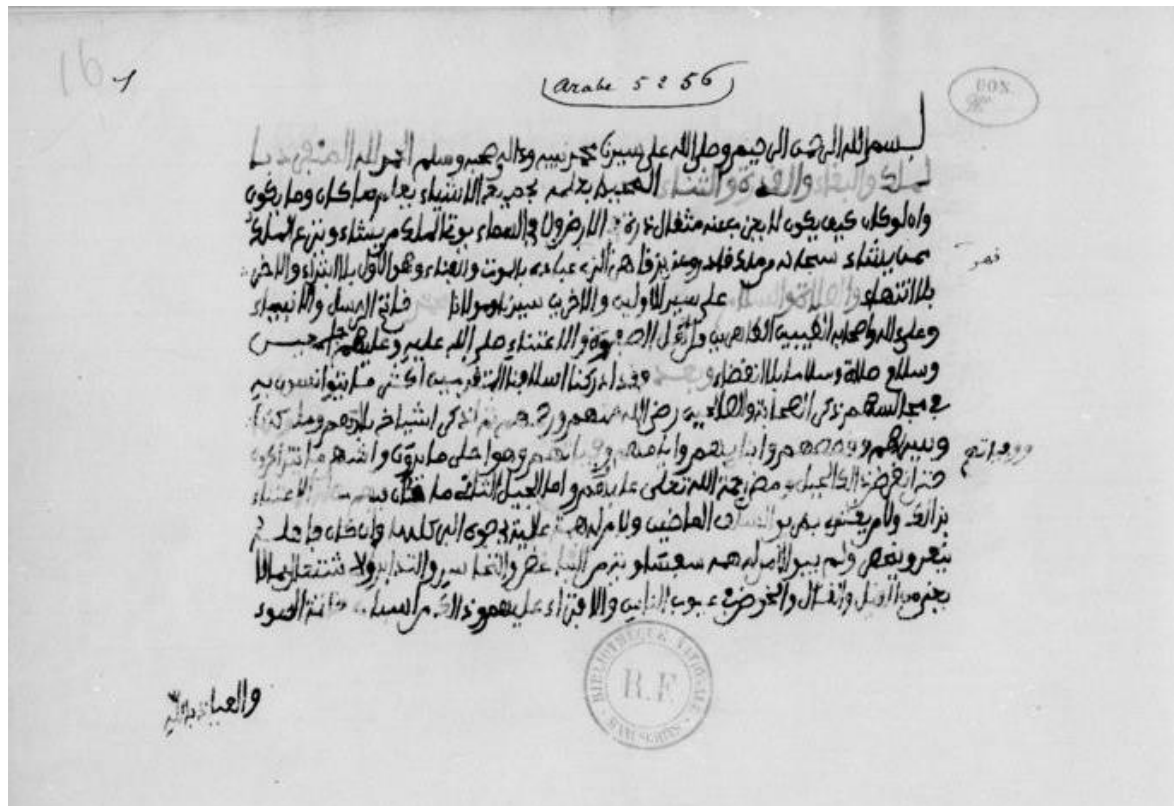 16
1
Arabe 5256
DON.
بسم الله الرحمن الرحيم وصلى الله على سيدنا محمد نبيه وءاله وصحبه وسلم الحمد لله المنفرد با
لملك والبقاء والقدرة والثناء المحيط بعلمه بجميع الاشياء يعلم ما كان وما يكون
وان لو كان كيف يكون لا يعزب عنه مثقال ذرة في الارض ولا في السماء يوتي الملك من يشاء وينزع الملك
ممن يشاء سبحانه من ملك قادر وعزيز قاهر الذي عباده بالموت والفناء وهو الاول بلا ابتداء والاخر
بلا انتهاء والصلاة والسلام على سيد الاولين والاخرين سيدنا ومولانا محمد خاتم الرسل والانبياء
وعلى اله واصحابه الطيبين الطاهرين اهل الصفوة والاعتناء صلى الله عليه وعليهم اجمعين
وسلم صلاة وسلاما بلا انقضاء وبعد فقد ادركنا اسلافنا المتقدمين اكثر ما يتوانسون به
في مجالسهم ذكر الصحابة والصالحين رضي الله عنهم ورحمهم ثم ذكر اشياخ بلادهم وملوكها
وسيرهم وقصصهم وانبايهم وايامهم ووفياتهم وهو احلى ما يرون واشهى ما يتذاكرون
حتى انقرض ذلك الجيل ومضى رحمة الله تعلى عليهم واما الجيل الثاني ما كان فيهم من له الاعتناء
بذلك ولا من يقتدي بمرور السلف الماضين ولا من له همة عالية
والنميمة والتحاسد والتدابر والاشتغال بما لا
يعني من القيل والقال والخوض في عيوب الناس والافتراء عليهم وذلك من اسباب خاتمة السوء
والعياذ بالله
BIBLIOTHEQUE NATIONALE
R.F.
MANUSCRITS